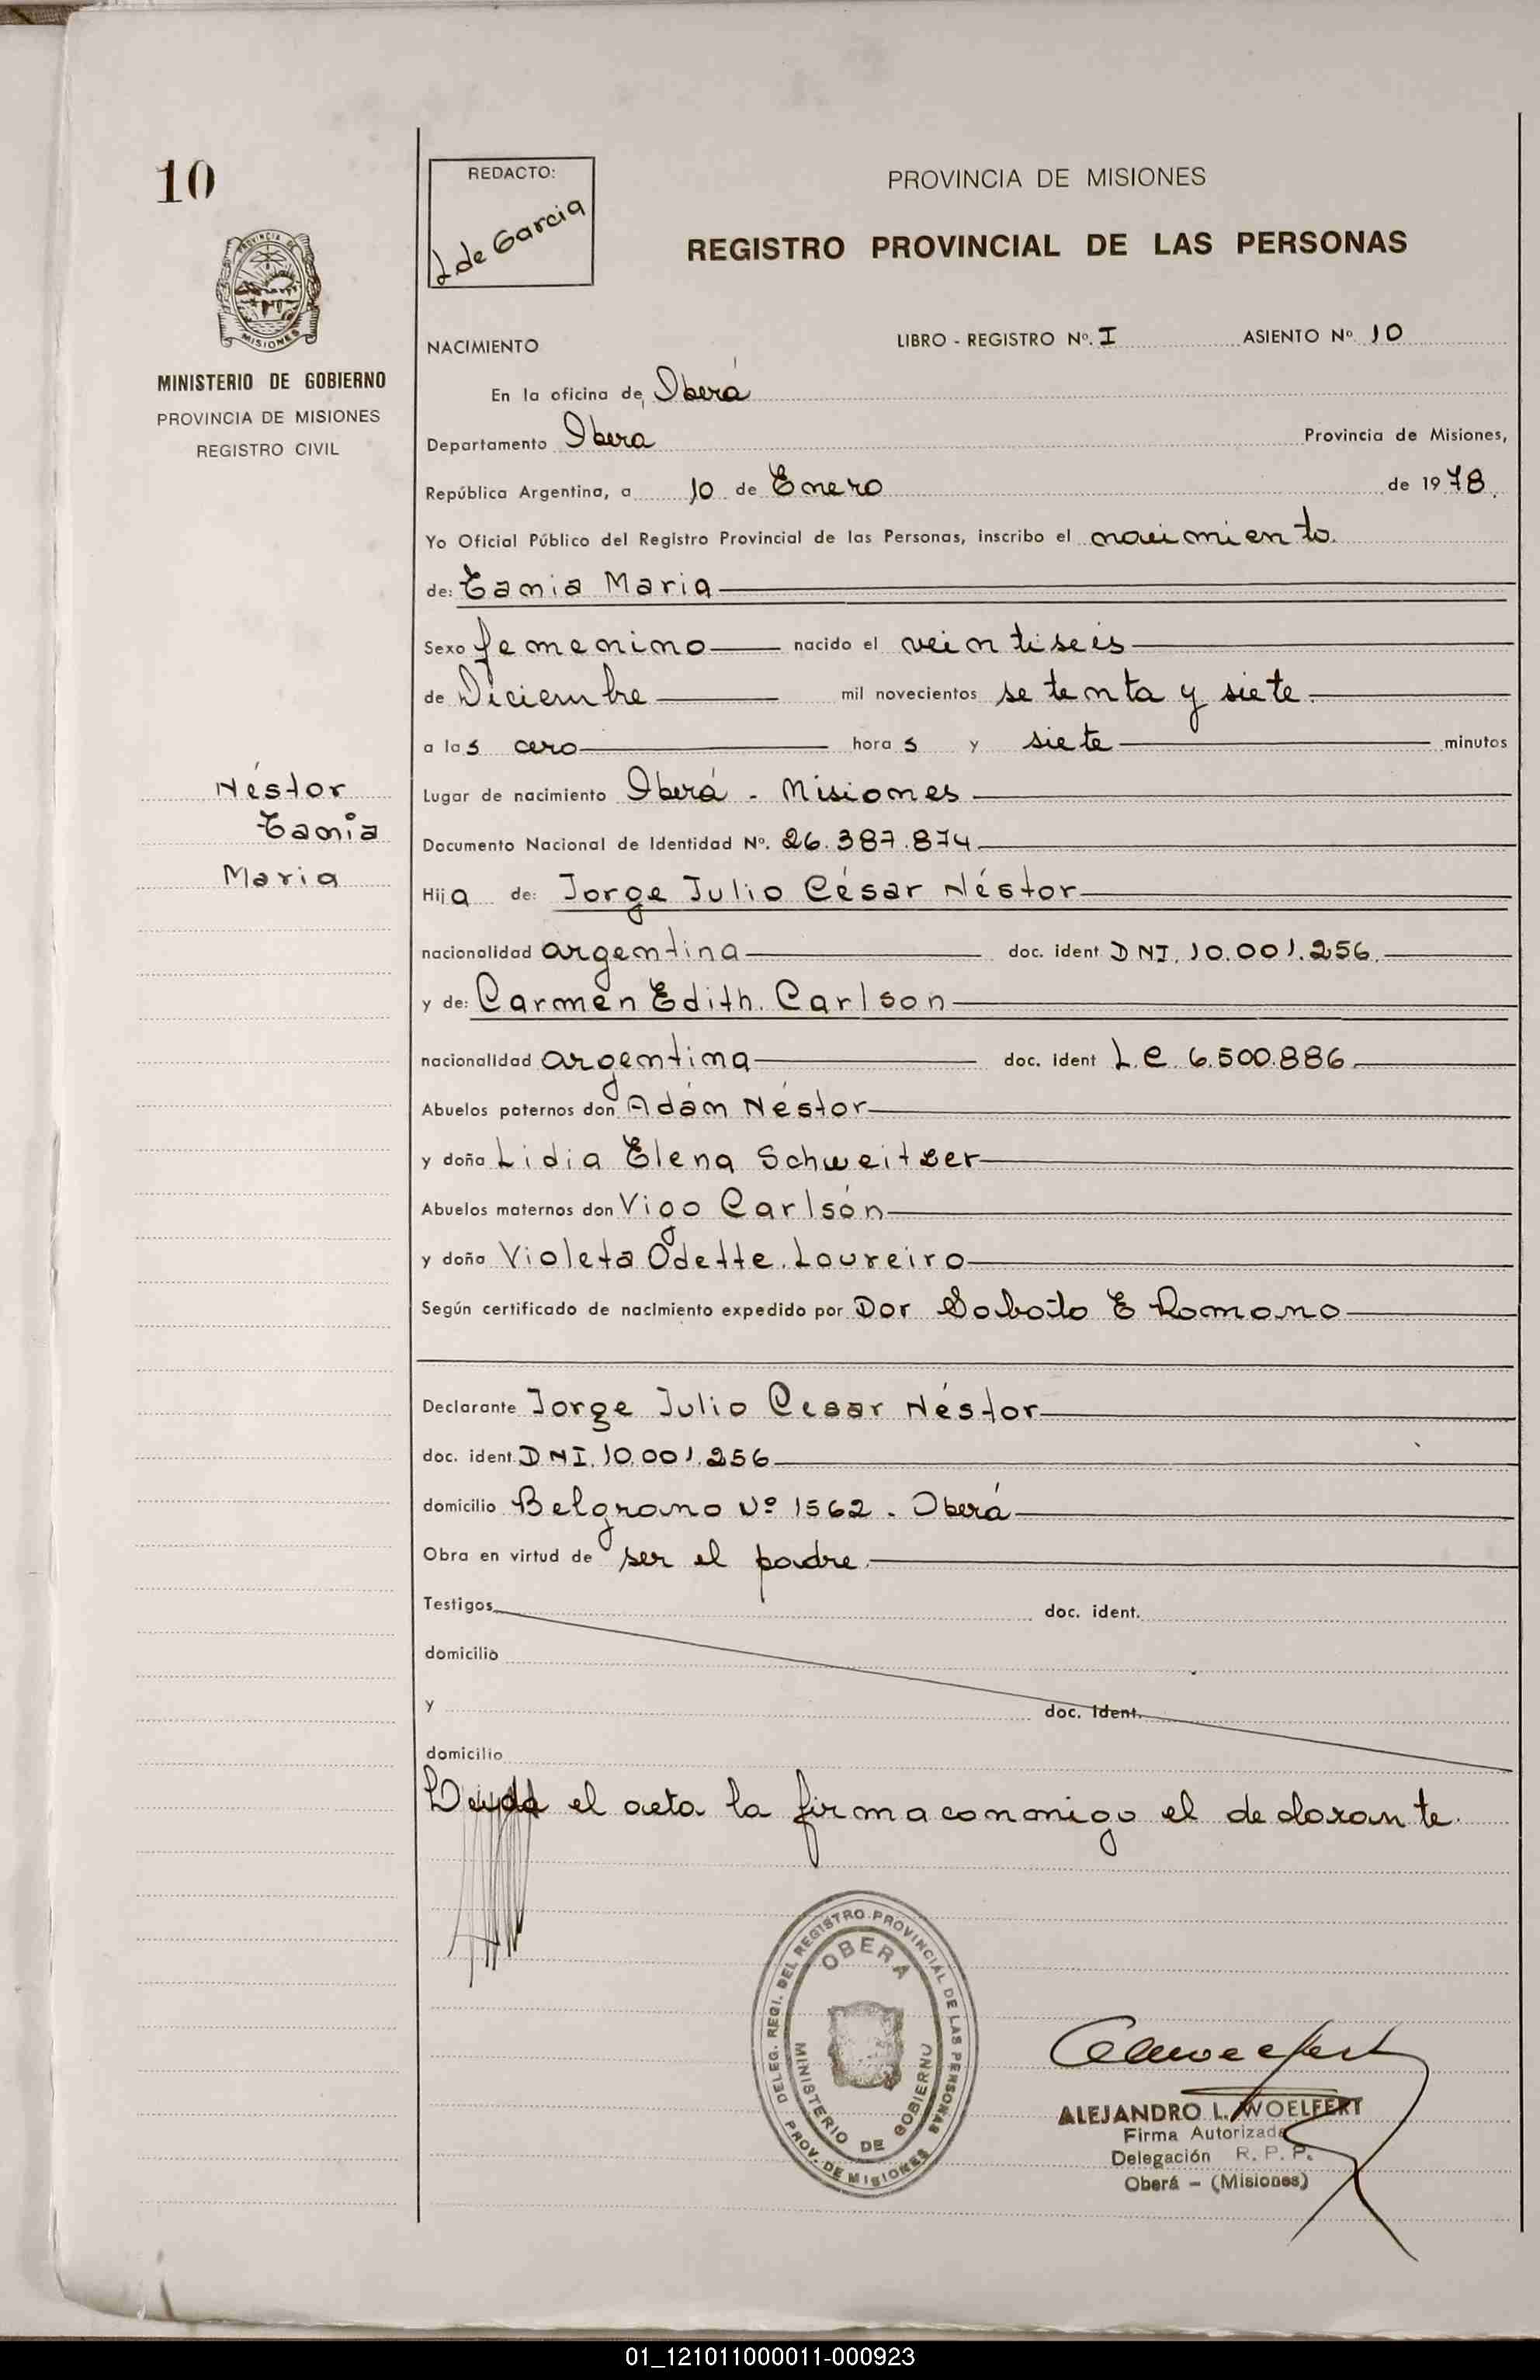 10
REDACTO:
L de Garcia
PROVINCIA DE MISIONES
REGISTRO PROVINCIAL DE LAS PERSONAS
PROVINCIA DE
MISIONES
MINISTERIO DE GOBIERNO
PROVINCIA DE MISIONES
REGISTRO CIVIL
NACIMIENTO LIBRO - REGISTRO Nº. I ASIENTO Nº 10
En la oficina de Oberá
Departamento Obera Provincia de Misiones,
República Argentina, a 10 de Enero de 1978.
Yo Oficial Público del Registro Provincial de las Personas, inscribo el nacimiento.
de: Tania Maria
Sexo femenino nacido el veintiseis
de Diciembre mil novecientos setenta y siete.
a las cero horas y siete minutos
Néstor
Tania
Maria
Lugar de nacimiento Oberá - Misiones
Documento Nacional de Identidad Nº. 26.387.874
Hija de: Jorge Julio César Néstor
nacionalidad argentina doc. ident DNI. 10.001.256.
y de: Carmen Edith. Carlson
nacionalidad argentina doc. ident L.C. 6.500.886
Abuelos paternos don Adán Néstor
y doña Lidia Elena Schweitzer
Abuelos maternos don Vigo Carlsón
y doña Violeta Odette. Loureiro
Según certificado de nacimiento expedido por Dor Sabato E Romano
Declarante Jorge Julio Cesar Néstor
doc. ident. DNI. 10.001.256
domicilio Belgrano Nº 1562 - Oberá
Obra en virtud de ser el padre.
Testigos doc. ident.
domicilio
y doc. ident.
domicilio
Leida el acta la firma conmigo el declarante.
DELEG. REGI. DEL REGISTRO PROVINCIAL DE LAS PERSONAS
OBERA
MINISTERIO DE GOBIERNO
PROV. DE MISIONES
ALEJANDRO L. WOELFERT
Firma Autorizada
Delegación R. P. P.
Oberá - (Misiones)
01_121011000011-000923